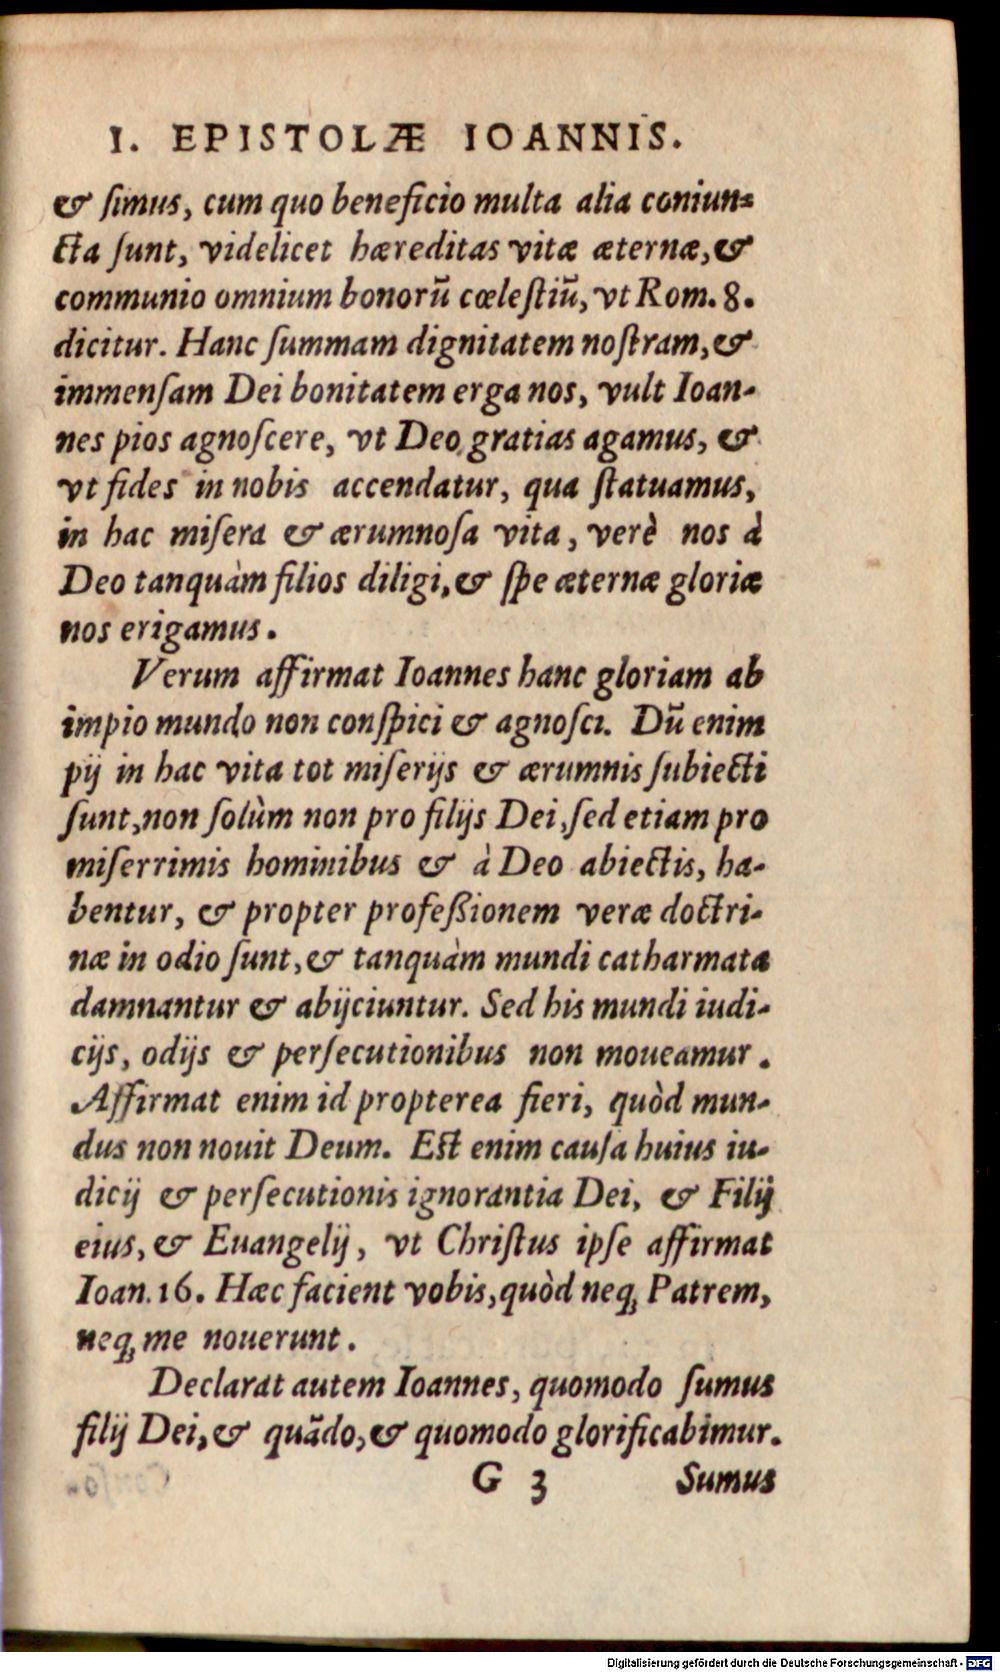 I. EPISTOLÆ IOANNIS.
& ſimus, cum quo beneficio multa alia coniun-
cta ſunt, videlicet hæreditas vitæ æternæ, &
communio omnium bonorū cœleſtiū, vt Rom. 8.
dicitur. Hanc ſummam dignitatem noſtram, &
immenſam Dei bonitatem erga nos, vult Ioan-
nes pios agnoſcere, vt Deo gratias agamus, &
vt fides in nobis accendatur, qua ſtatuamus,
in hac miſera & ærumnoſa vita, verè nos à
Deo tanquàm filios diligi, & ſpe æternæ gloriæ
nos erigamus.
Verum affirmat Ioannes hanc gloriam ab
impio mundo non conſpici & agnoſci. Dū enim
pij in hac vita tot miſerijs & ærumnis ſubiecti
ſunt, non ſolùm non pro filijs Dei, ſed etiam pro
miſerrimis hominibus & à Deo abiectis, ha-
bentur, & propter profeßionem veræ doctri-
næ in odio ſunt, & tanquàm mundi catharmata
damnantur & abijciuntur. Sed his mundi iudi-
cijs, odijs & perſecutionibus non moueamur.
Affirmat enim id propterea fieri, quòd mun-
dus non nouit Deum. Eſt enim cauſa huius iu-
dicij & perſecutionis ignorantia Dei, & Filij
eius, & Euangelij, vt Chriſtus ipſe affirmat
Ioan. 16. Hæc facient vobis, quòd neq; Patrem,
neq; me nouerunt.
Declarat autem Ioannes, quomodo ſumus
filij Dei, & quādo, & quomodo glorificabimur.
G 3 Sumus
Digitalisierung gefördert durch die Deutsche Forschungsgemeinschaft - DFG